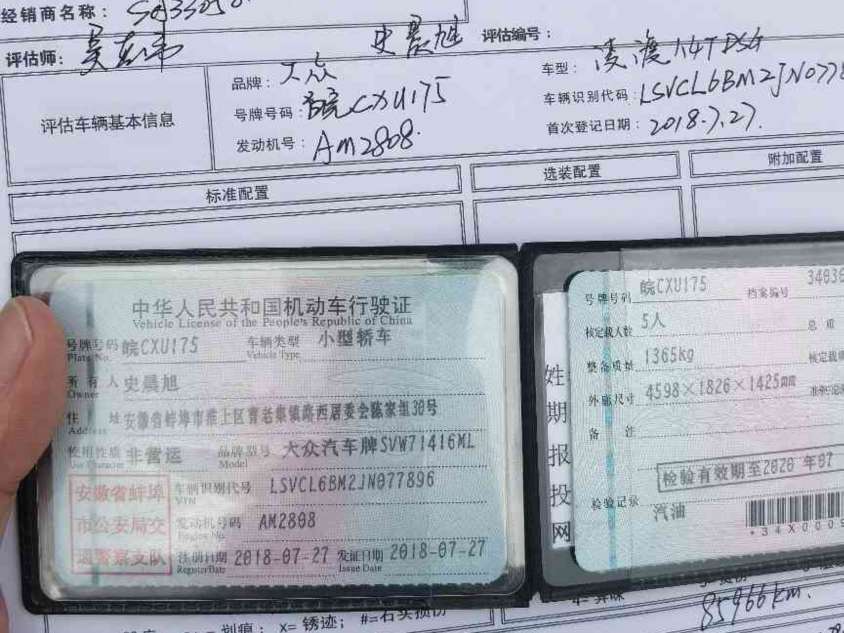 经销商名称：
评估师：史晨旭 评估编号：
评估车辆基本信息
品牌：大众 车型：凌渡1.4TDSG
号牌号码：皖CXU175 车辆识别代码：LSVCL6BM2JN0778
发动机号：AM2808. 首次登记日期：2018.7.27.
标准配置 选装配置 附加配置
中华人民共和国机动车行驶证
Vehicle License of the People's Republic of China
号牌号码 皖CXU175 车辆类型 小型轿车
Plate No. Vehicle Type
所有人 史晨旭
Owner
住址 安徽省蚌埠市淮上区曹老集镇路西居委会陈家组30号
Address
使用性质 非营运 品牌型号 大众汽车牌SVW71416ML
Use Character Model
安徽省蚌埠
市公安局交
通警察支队
车辆识别代号 LSVCL6BM2JN077896
VIN
发动机号码 AM2808
Engine No.
注册日期 2018-07-27 发证日期 2018-07-27
Register Date Issue Date
号牌号码 皖CXU175 档案编号 34030
核定载人数 5人 总质
整备质量 1365kg 核定载
外廓尺寸 4598×1826×1425mm 准牵
备注
检验有效期至2020年07
检验记录
汽油
*34X0009
姓
期
报
投
网
划痕； X=锈迹； #=石头损伤
85966km.